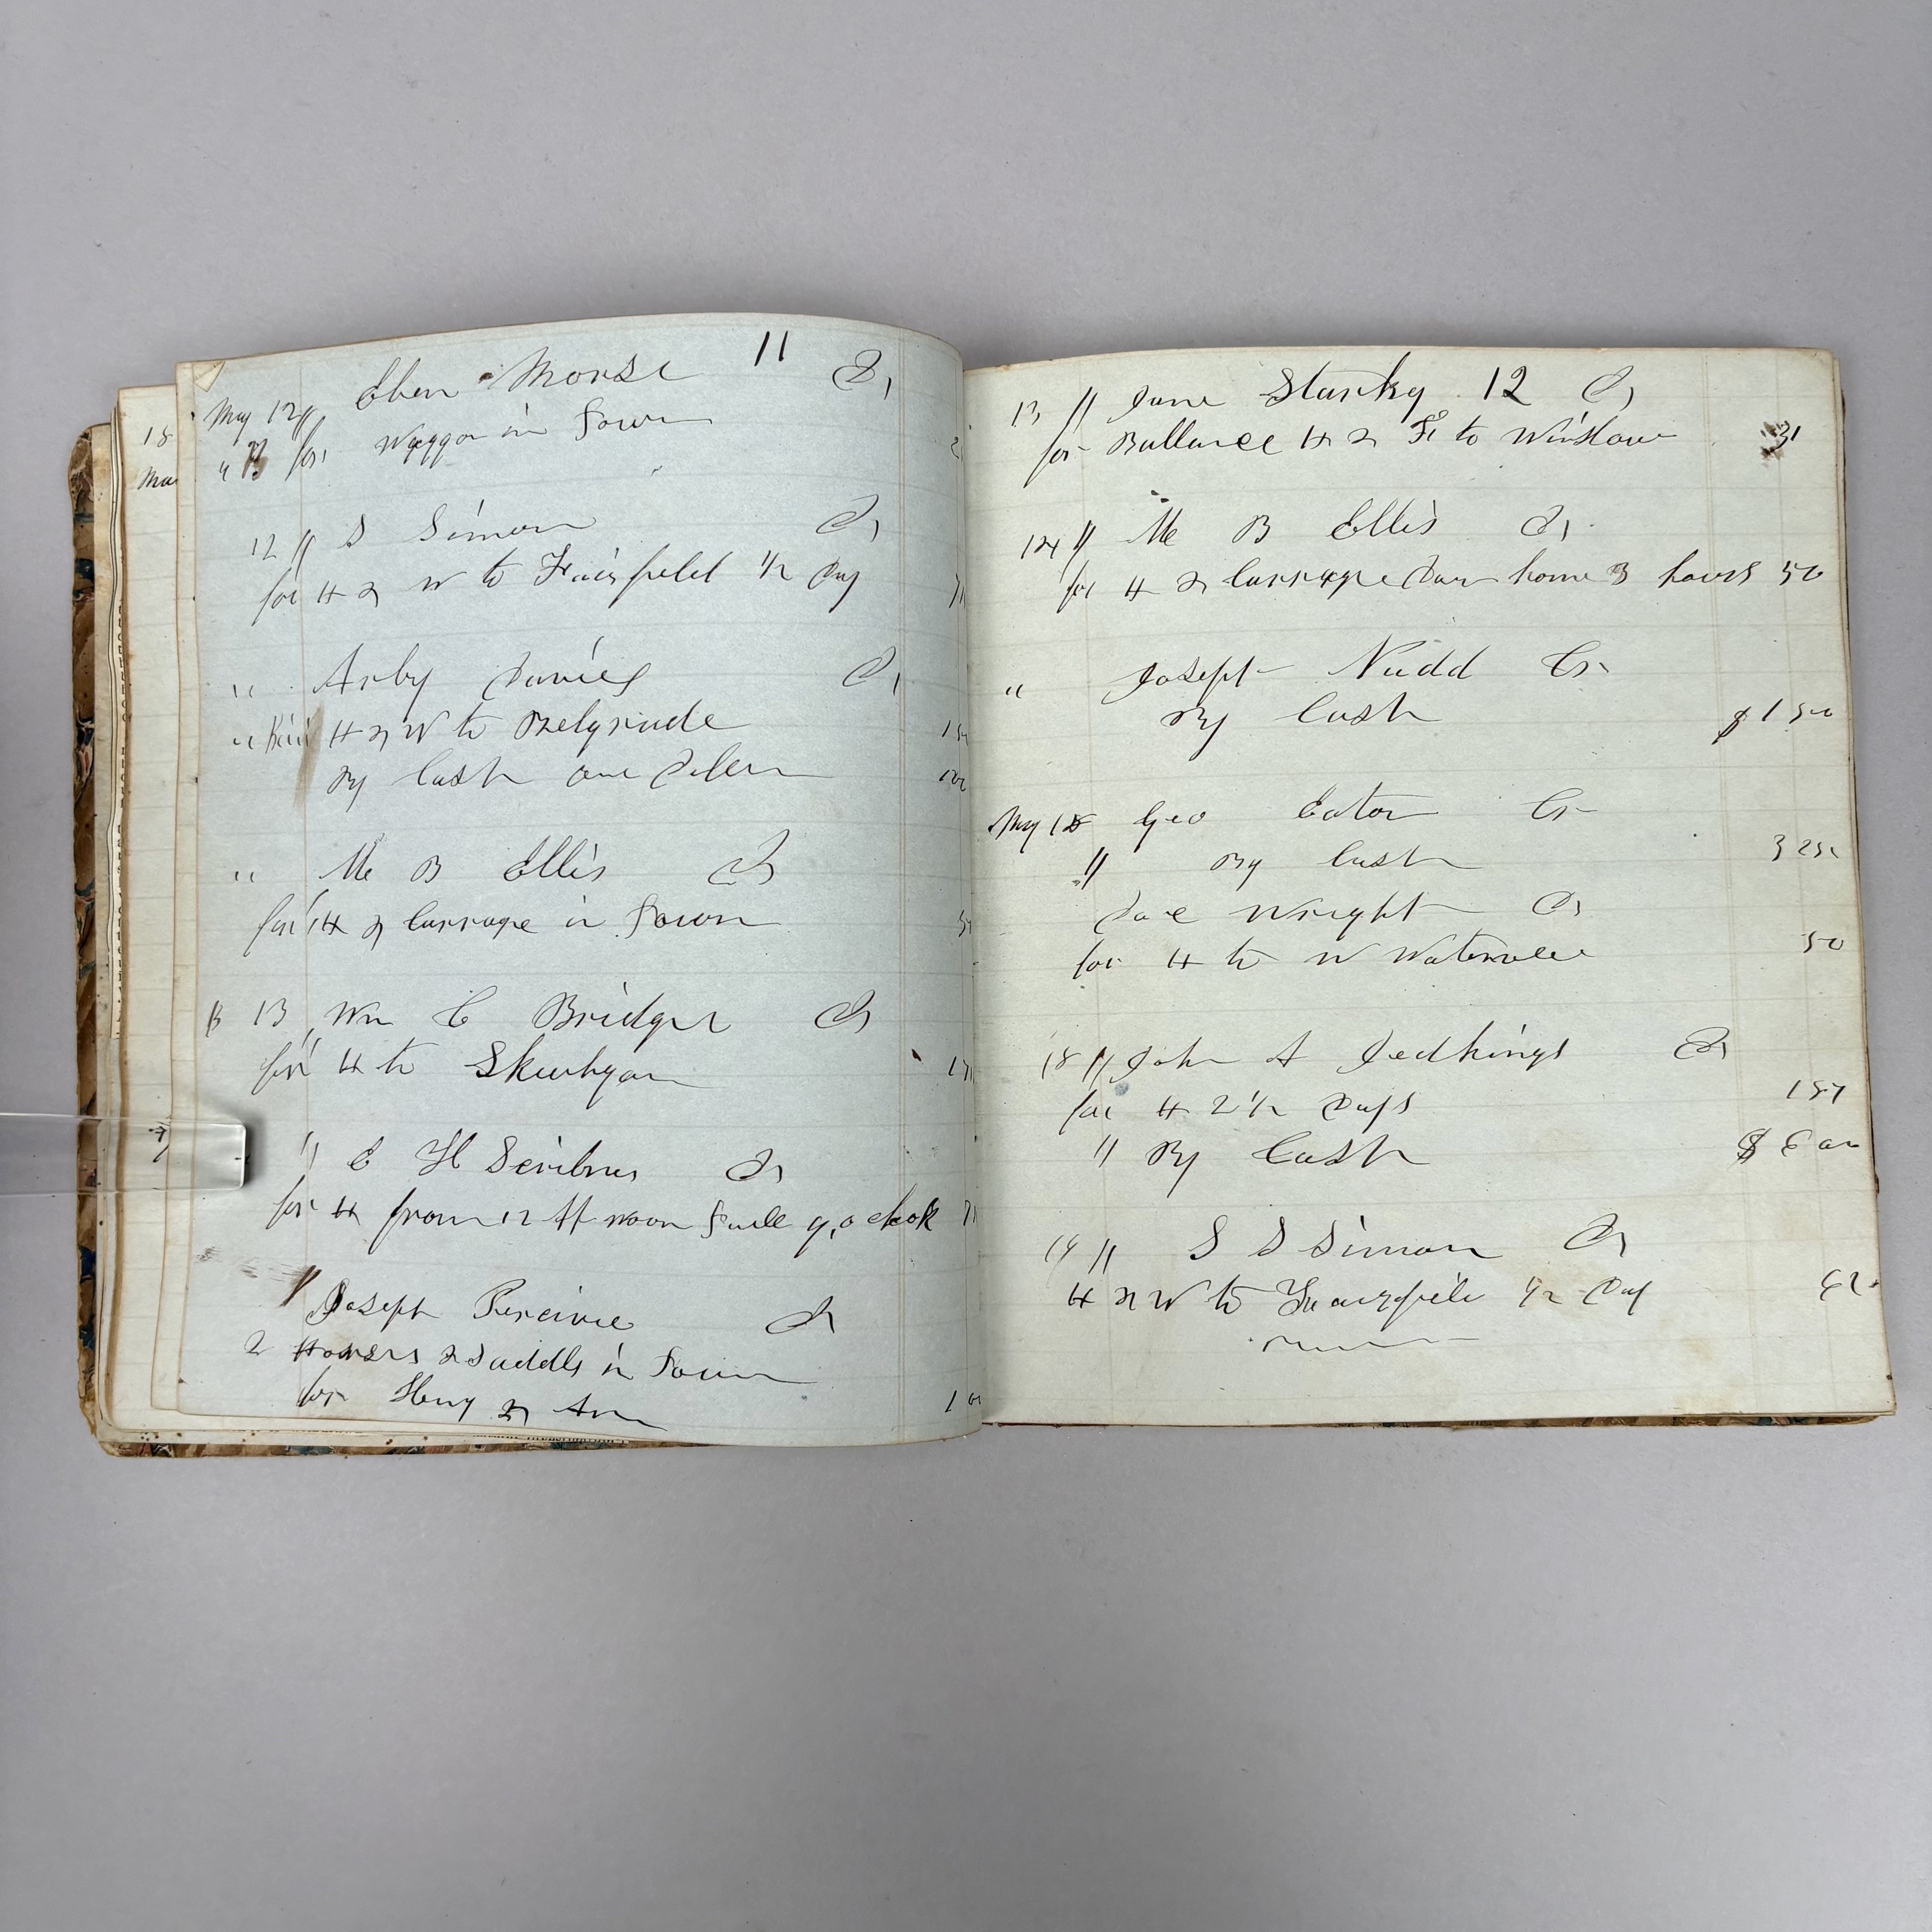 18
Ma
11
Eben Morse Dr
May 12 //
" for Waggon in Town
12 // S Simon Dr
for H & W to Fairfield 1/2 Day
" Arby Davies Dr
" H & W to Belgrade
By Cash one Doler
" M B Ellis Dr
for H & Carrage in Town
13 Wm C Bridger Dr
for H to Skowhgan
// C H Scribner Dr
for H from 12 At noon Till 9, o clock
// Joseph Percivie Dr
2 Horses & Saddls in Town
for Heny & Ann 1 00
12
13 // Jane Starky Dr
for Ballance H & Sl to Winslow 31
14 // M B Ellis Dr
for H & Carrage Dan home 3 hours 50
" Joseph Nudd Cr
By Cash $ 1 50
May 18 Geo Eaton Cr
// By Cash 3 25
Dave Wright Dr
for H to W Waterville 50
18 // John A Jedkings Dr
for H 2 1/2 Days 1 87
// By Cash $
19 // S S Simon Dr
H & W to Fairfield 1/2 Day 62